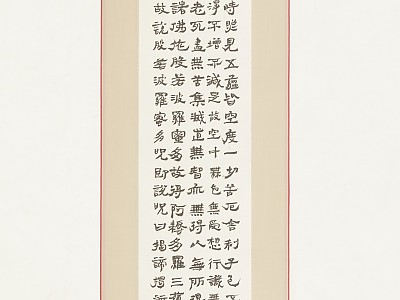 時照見五蘊皆空度一切苦厄舍利子色不
淨不增不減是故空中無色無受想行識無
老死盡無苦集滅道無智亦無得以無所得
諸佛依般若波羅蜜多故得阿耨多羅三藐
故說般若波羅蜜多咒即說咒曰揭諦揭諦